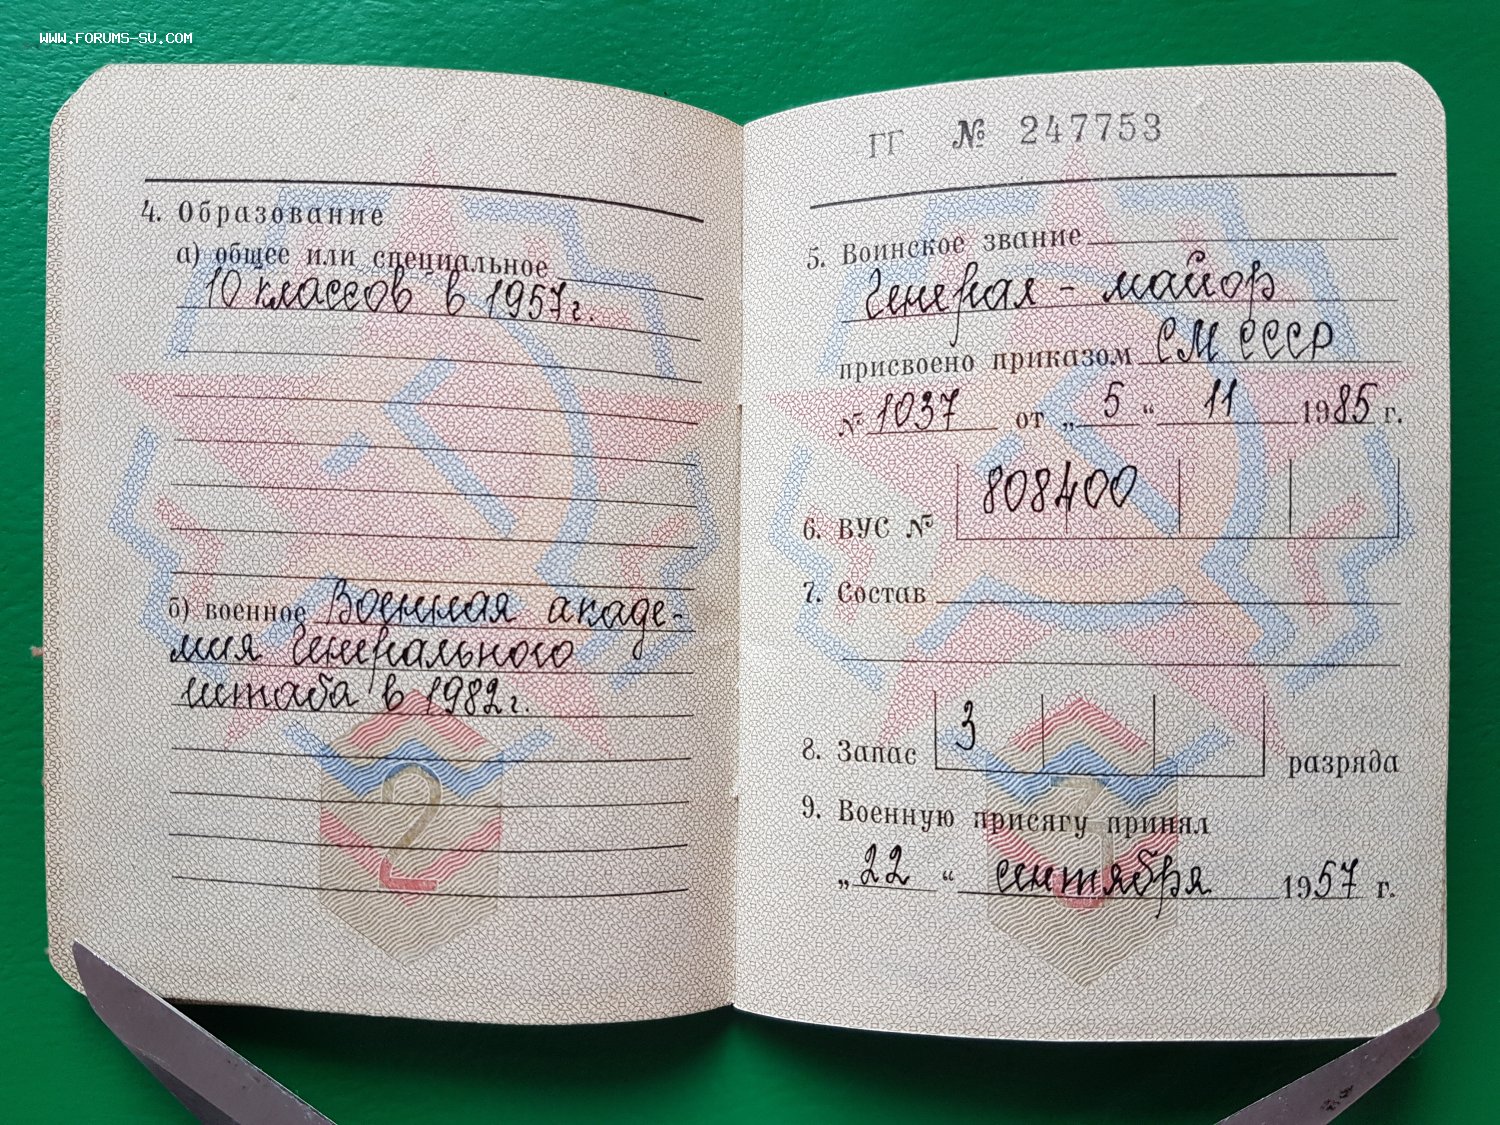 WWW.FORUMS-SU.COM
4. Образование
а) общее или специальное
10 классов в 1957г.
б) военное Военная акаде-
мия Генерального
штаба в 1982г.
2
ГГ № 247753
5. Воинское звание
Генерал - майор
присвоено приказом СМ СССР
№ 1037 от „5“ 11 1985 г.
6. ВУС № 808400
7. Состав
8. Запас 3 разряда
9. Военную присягу принял
„22“ сентября 1957 г.